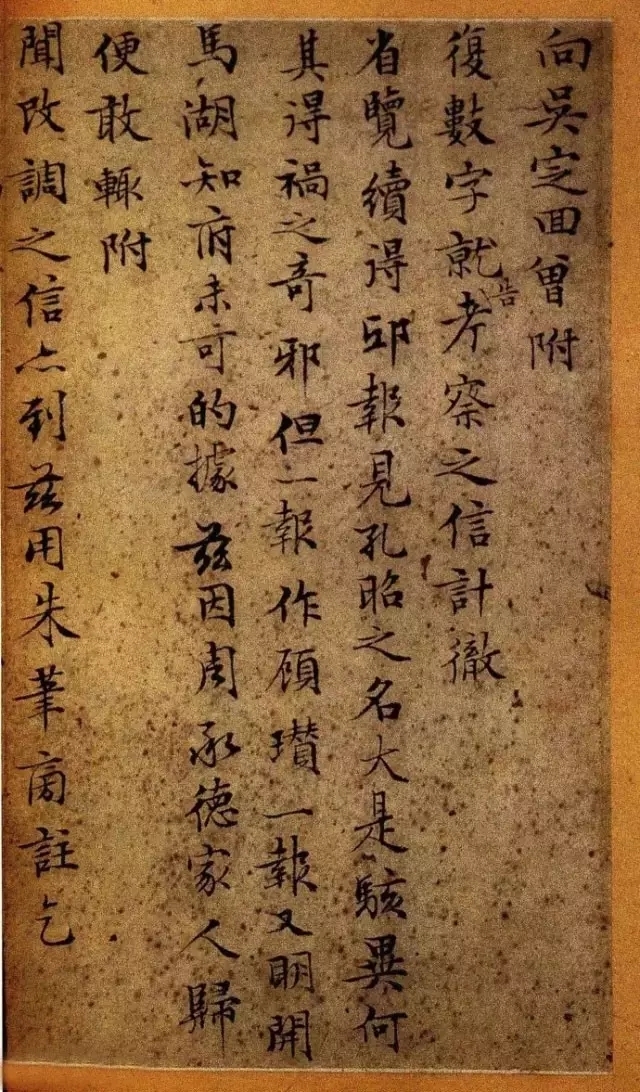 向吳定回曾附
復數字就告考察之信計徹
省覽續得邸報見孔昭之名大是駭異何
其得禍之奇邪但一報作顧瓚一報又明開
馬湖知府未可的據茲因周承德家人歸
便敢輒附
聞改調之信亦到茲用朱筆啇註乞